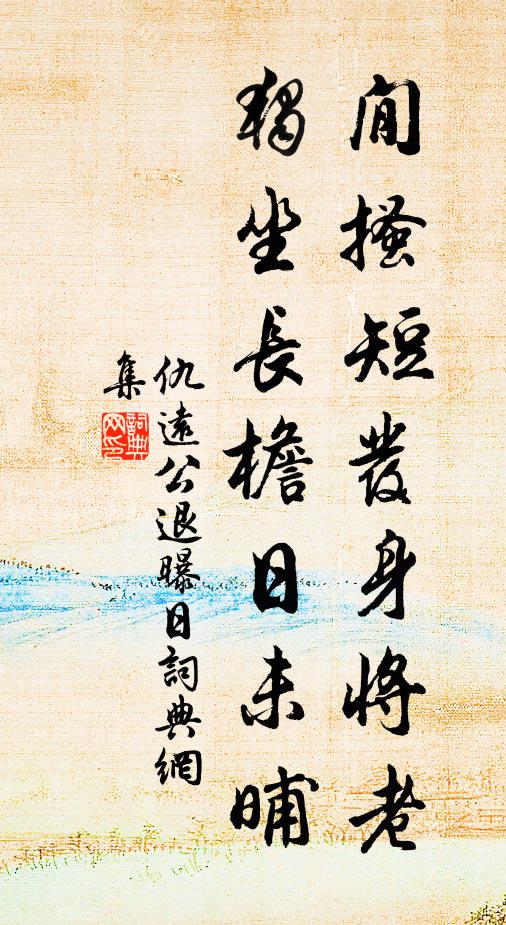 閒搔短發身將老
獨坐長檐日未晡
仇遠公退曝日詞典網
集
詞典
网印